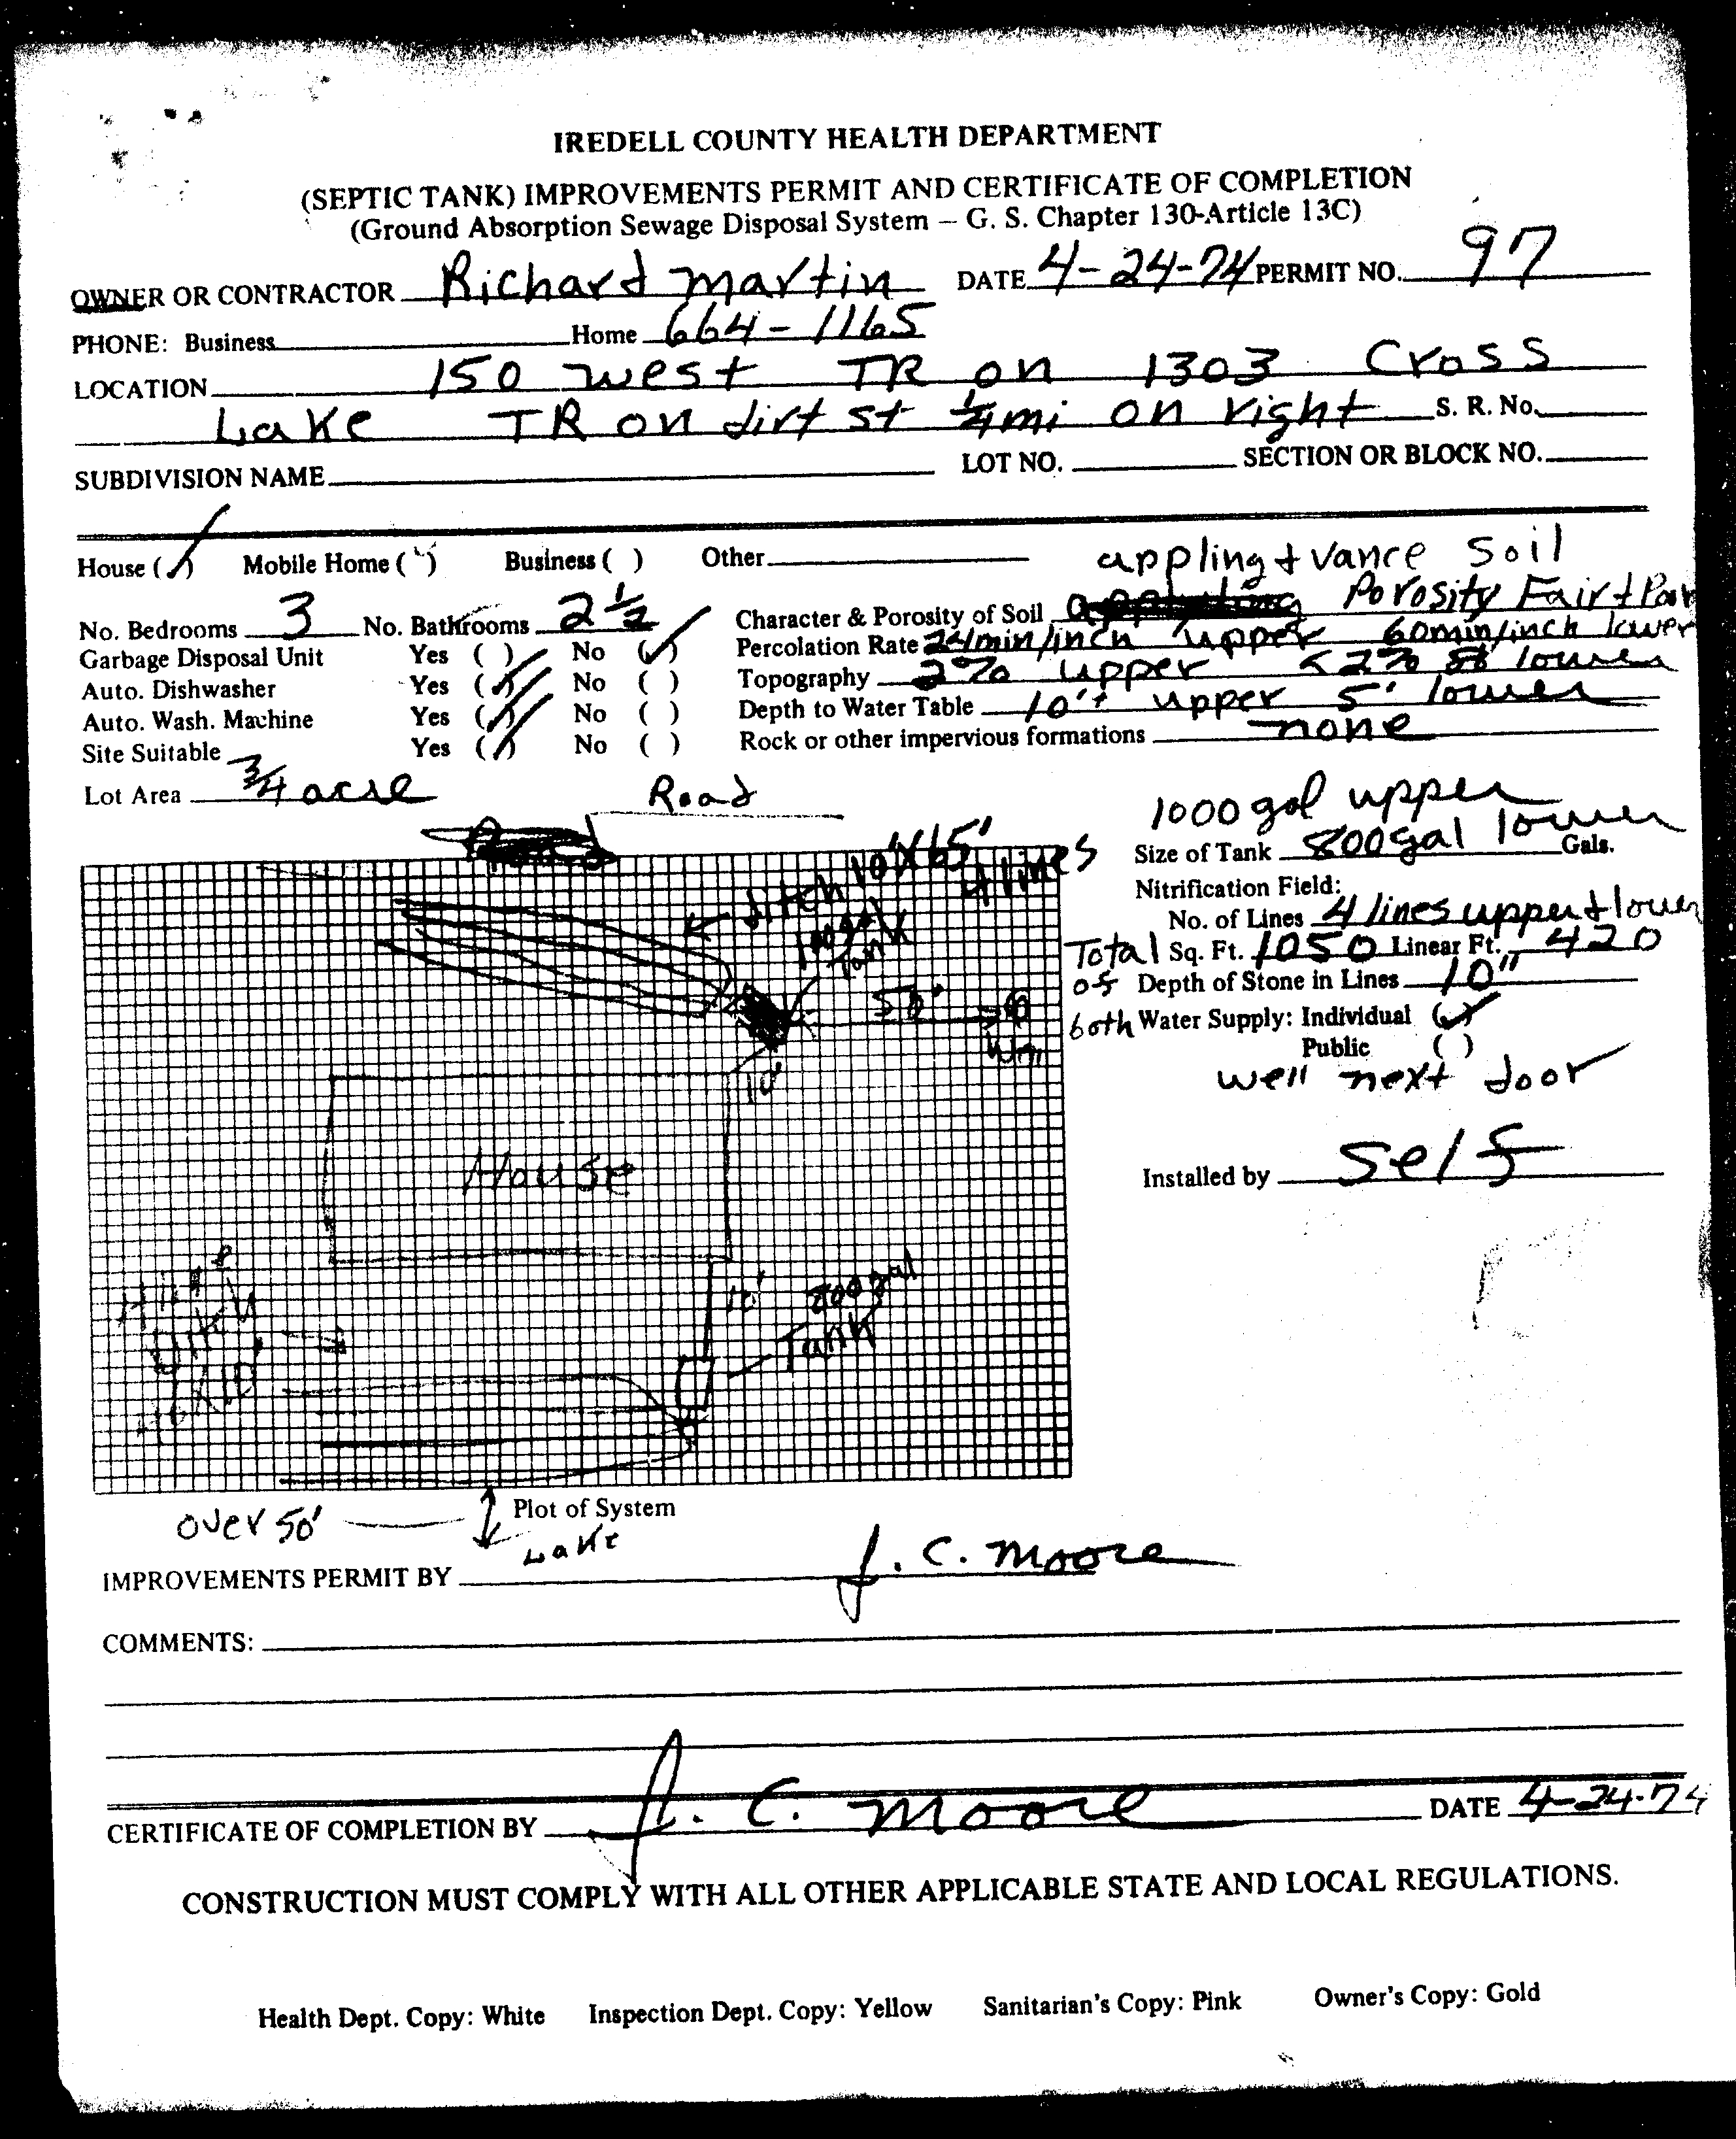 IREDELL COUNTY HEALTH DEPARTMENT
(SEPTIC TANK) IMPROVEMENTS PERMIT AND CERTIFICATE OF COMPLETION
(Ground Absorption Sewage Disposal System – G. S. Chapter 130-Article 13C)
OWNER OR CONTRACTOR Richard Martin DATE 4-24-74 PERMIT NO. 97
PHONE: Business Home 664-1165
LOCATION 150 west TR on 1303 Cross
Lake TR on dirt st 1/4 mi on right S. R. No.
SUBDIVISION NAME LOT NO. SECTION OR BLOCK NO.
House (✓) Mobile Home ( ) Business ( ) Other appling + vance Soil
No. Bedrooms 3 No. Bathrooms 2 1/2 Character & Porosity of Soil Porosity Fair + Poor
Garbage Disposal Unit Yes ( ) No (✓) Percolation Rate 24min/inch upper 60min/inch lower
Auto. Dishwasher Yes (✓) No ( ) Topography 2% upper <2% lower
Auto. Wash. Machine Yes (✓) No ( ) Depth to Water Table 10'+ upper 5' lower
Site Suitable Yes (✓) No ( ) Rock or other impervious formations none
Lot Area 3/4 acre Road
1000 gal upper
Size of Tank 800 gal lower Gals.
Nitrification Field:
No. of Lines 4 lines upper + lower
Total Sq. Ft. 1050 Linear Ft. 420
of Depth of Stone in Lines 10"
both Water Supply: Individual (✓)
Public ( )
well next door
Installed by Self
ditch 10"x65'
4 lines
Tank
50'
10'
House
10'
800gal
Tank
over 50' Plot of System
Lake
IMPROVEMENTS PERMIT BY J. C. Moore
COMMENTS:
CERTIFICATE OF COMPLETION BY J. C. Moore DATE 4-24-74
CONSTRUCTION MUST COMPLY WITH ALL OTHER APPLICABLE STATE AND LOCAL REGULATIONS.
Health Dept. Copy: White Inspection Dept. Copy: Yellow Sanitarian's Copy: Pink Owner's Copy: Gold